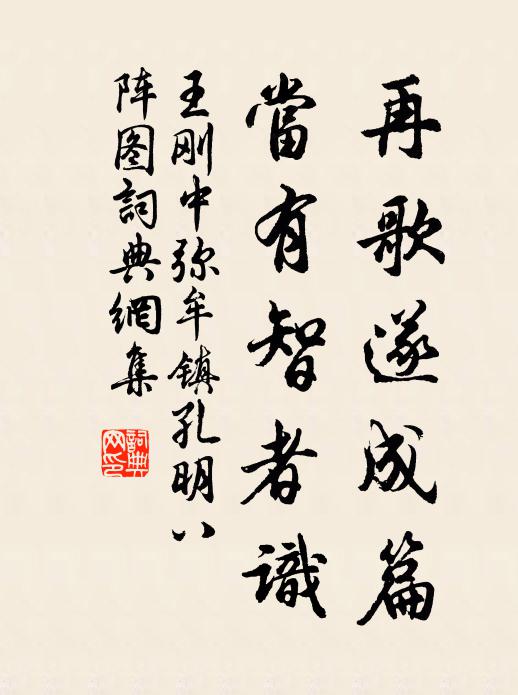 再歌遂成篇
當有智者識
王刚中弥牟镇孔明八
阵图詞典網集
詞典
网印